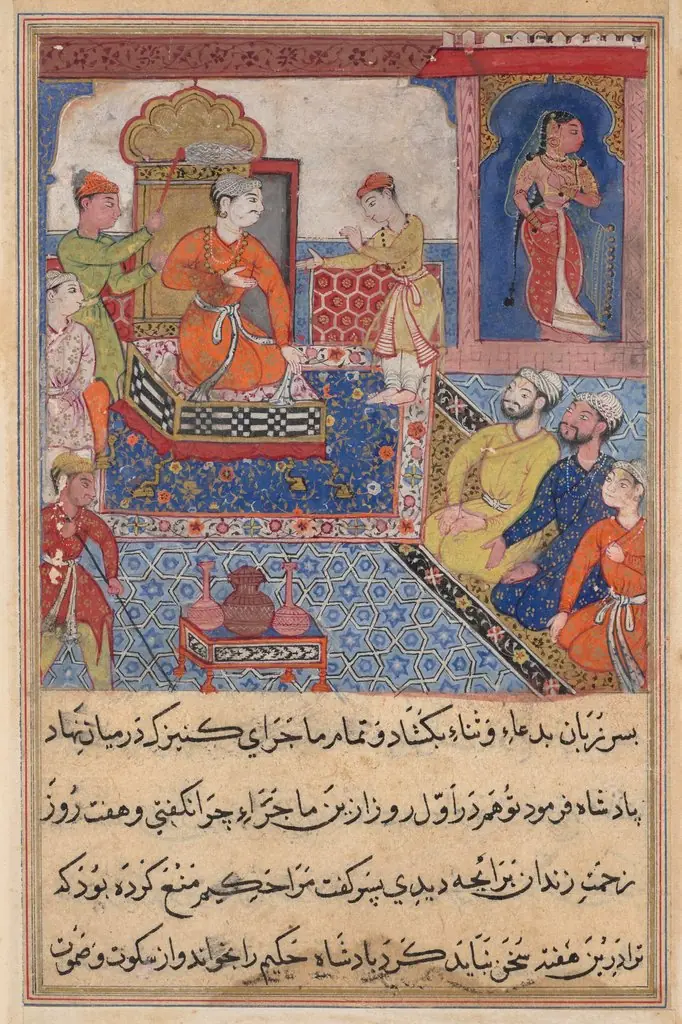 پسر زبان بدعاء و ثناء بکشاد و تمام ماجرای کنیزک درمیان نهاد
پادشاه فرمود تو هم در اول روز ازین ماجراء چرا نکفتی و هفت روز
زحمت زندان برائچه دیدی پسر کفت مرا حکیم منع کرده بود که
ترا درین هفته سخن نباید کرد پادشاه حکیم را بخواند و از سکوت و صموت